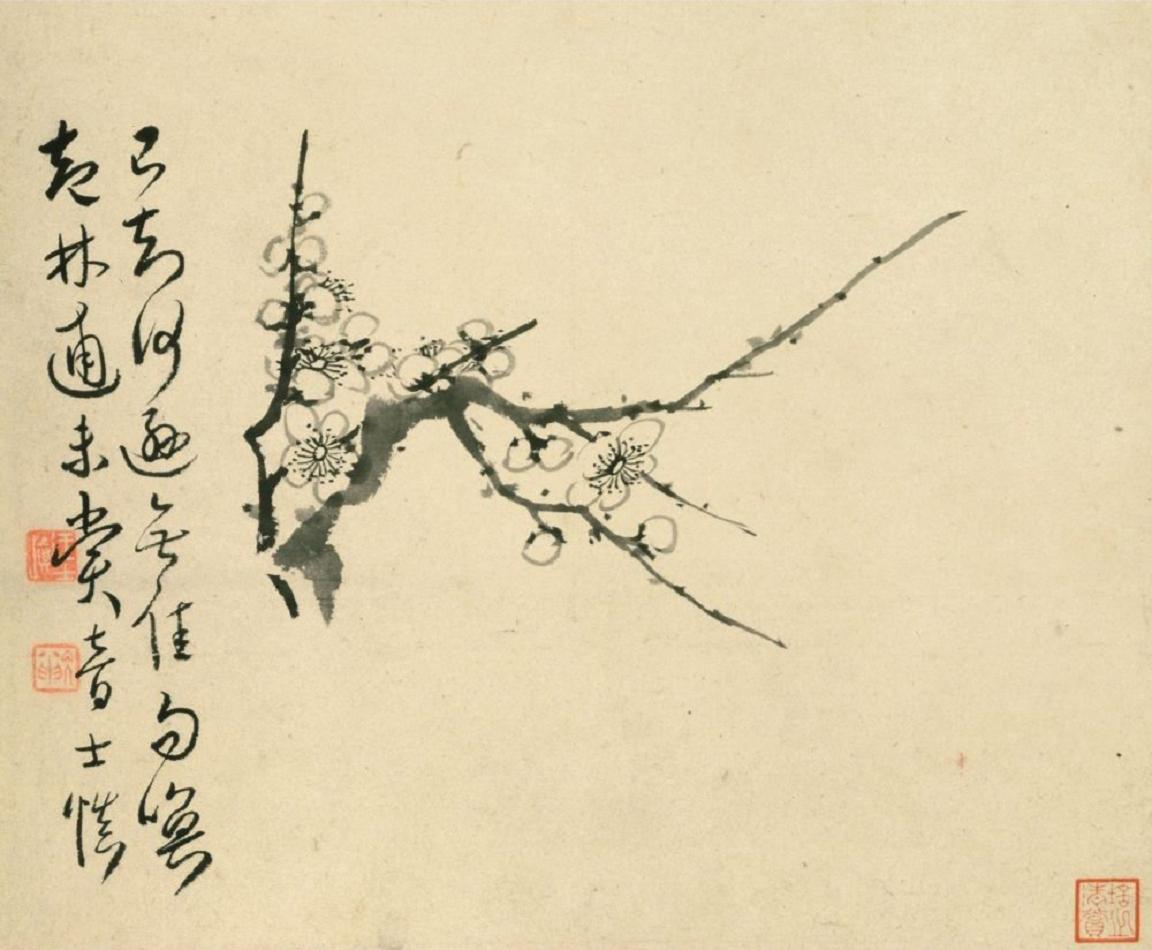 已知何遜無佳句喚
起林逋未賞音士慎